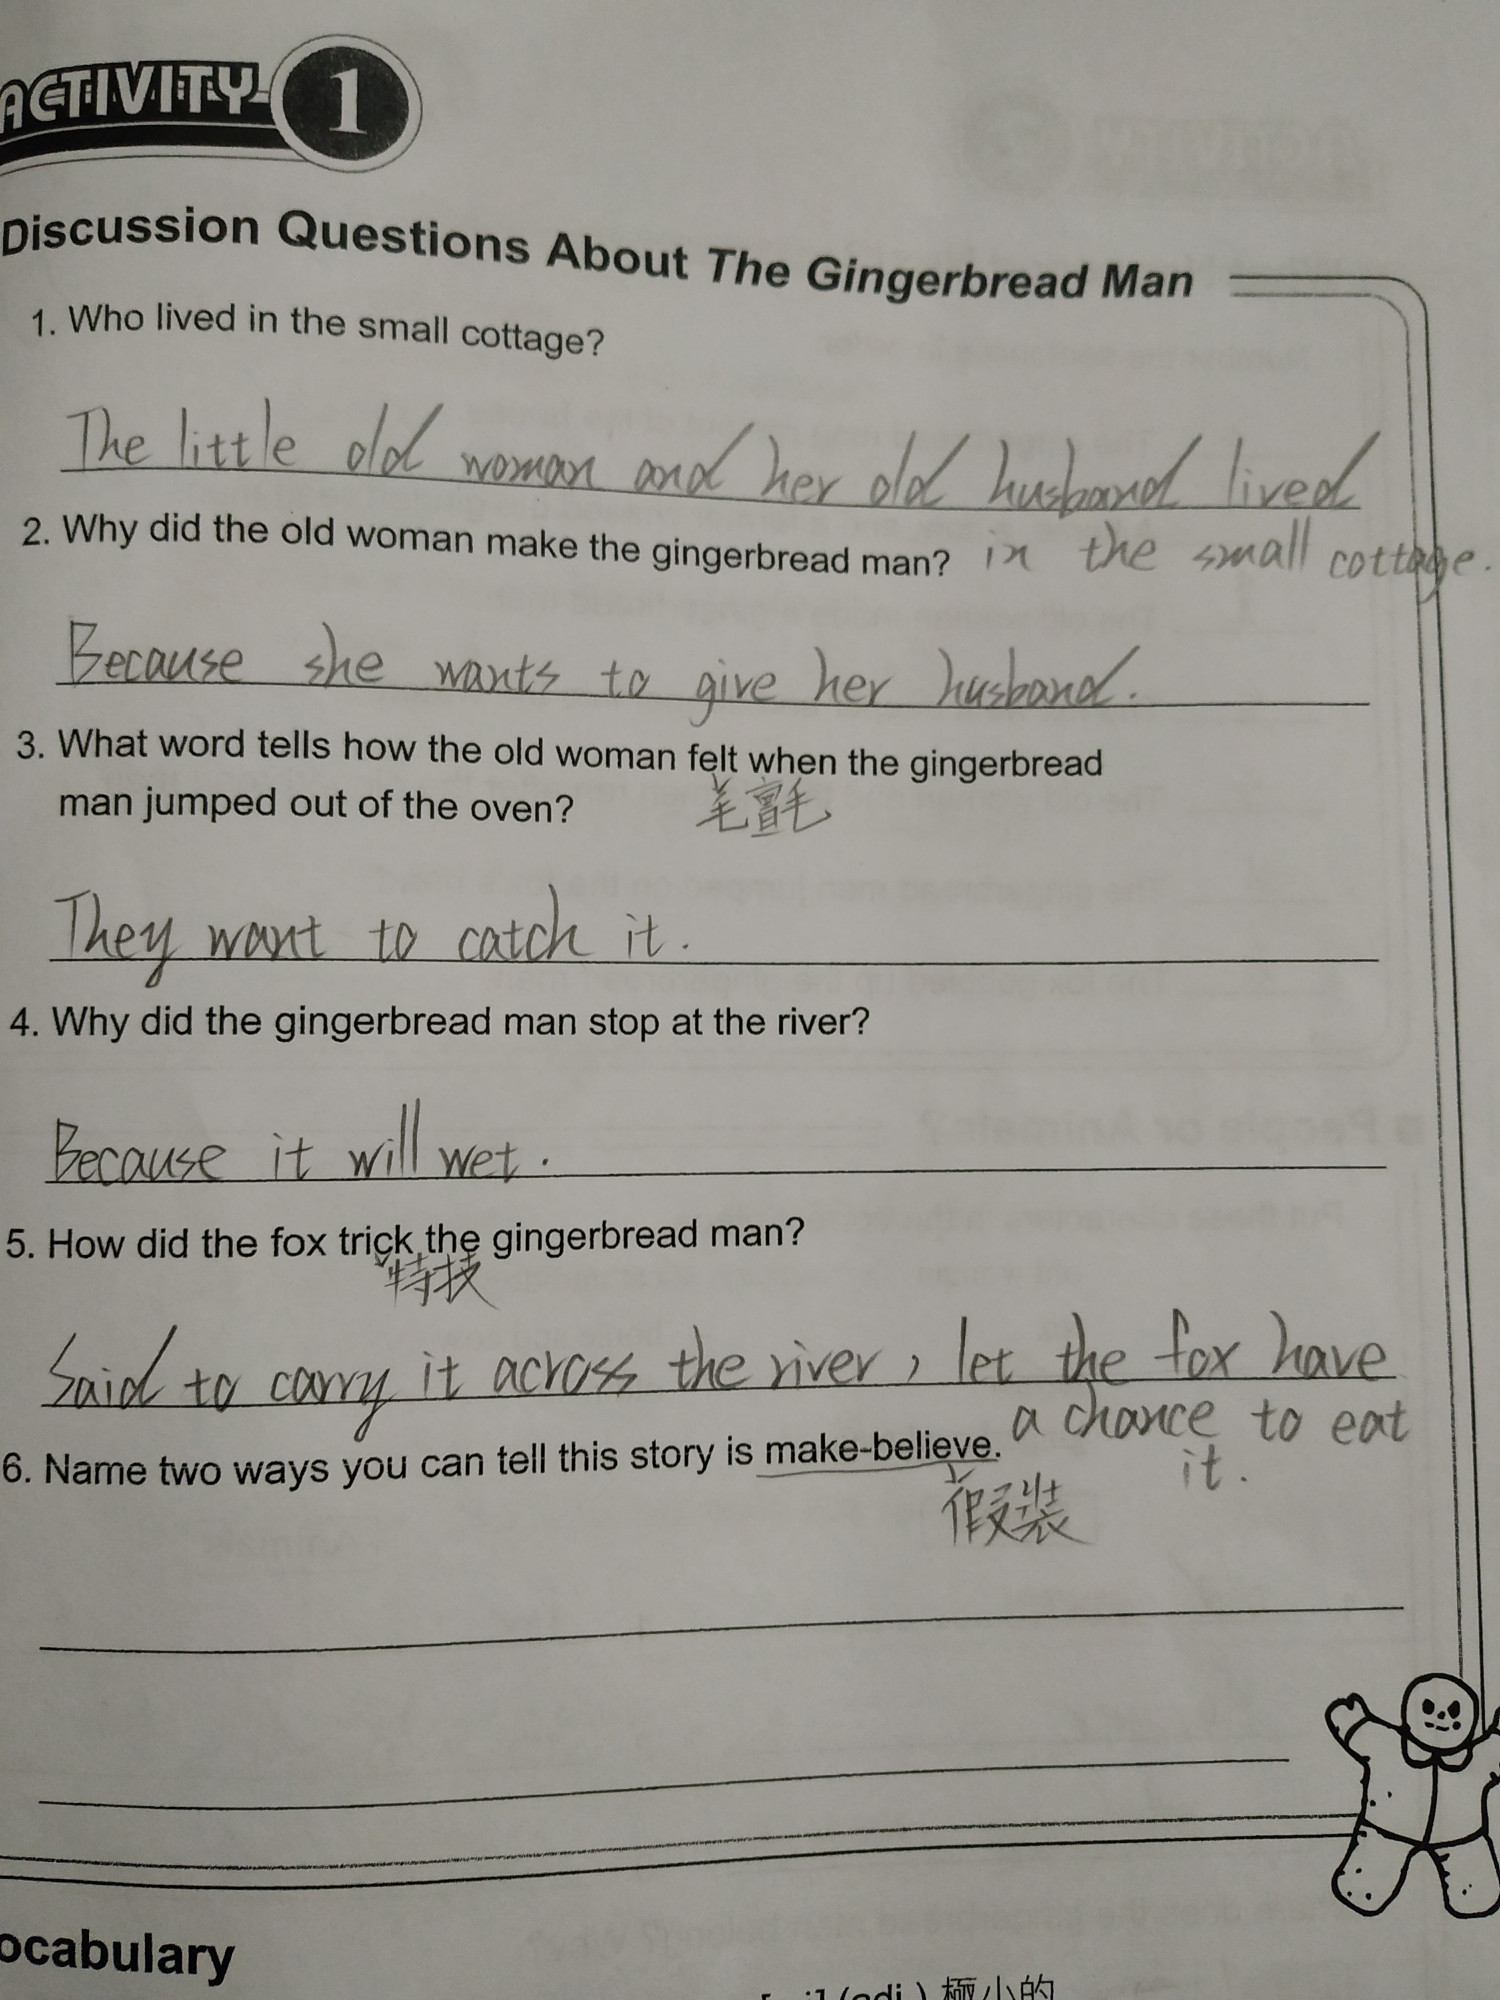 ACTIVITY 1
Discussion Questions About The Gingerbread Man
1. Who lived in the small cottage?
The little old woman and her old husband lived
in the small cottage.
2. Why did the old woman make the gingerbread man?
Because she wants to give her husband.
3. What word tells how the old woman felt when the gingerbread
man jumped out of the oven?
羊氊
They want to catch it.
4. Why did the gingerbread man stop at the river?
Because it will wet.
5. How did the fox trick the gingerbread man?
特技
Said to carry it across the river, let the fox have
a chance to eat
it.
6. Name two ways you can tell this story is make-believe.
假裝
ocabulary
(adj.) 極小的